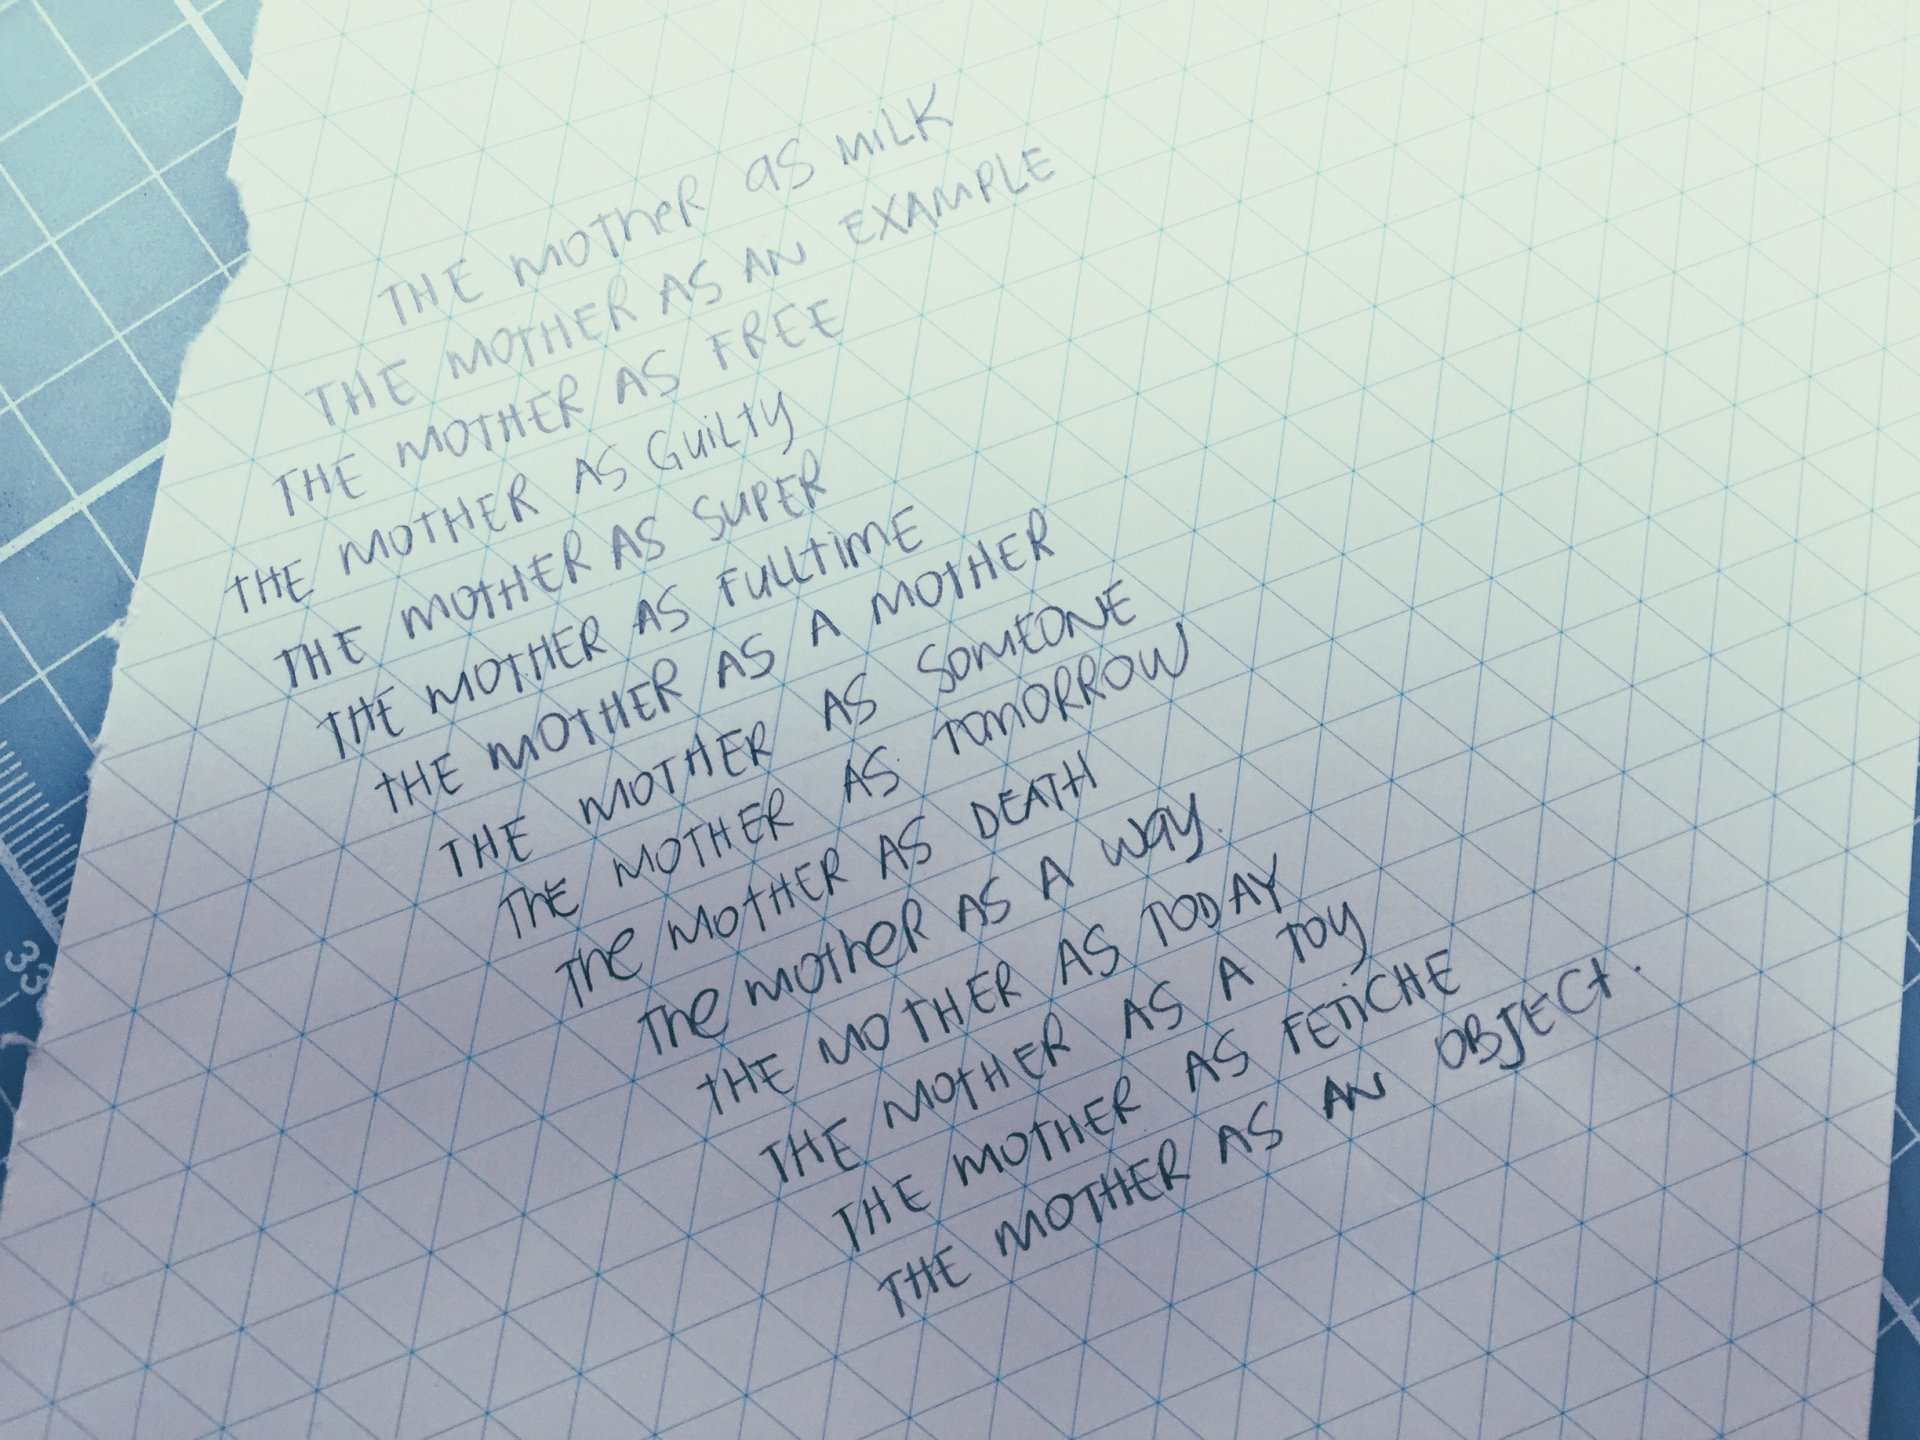 THE MOTHER aS MiLK
THE MOTHER AS AN EXAMPLE
THE MOTHER AS FREE
THE MOTHER AS GUiLTY
THE MOTHER AS SUPER
THE MOTHER AS FULLTIME
THE MOTHER AS A MOTHER
THE MOTHER AS SOMEONE
ThE MOTHER AS TOMORROW
The MOTHER AS DEATH
The MOTheR AS A Way.
THE MOTHER AS TODAY
THE MOTHER AS A TOY
THE MOTHER AS FETiCHE
THE MOTHER AS AN OBJECT.
33